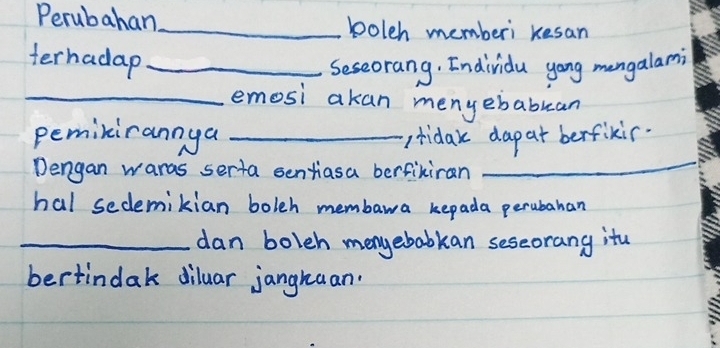 Perubahan__________ boleh memberi kesan
terhadap__________ Seseorang. Individu yang mengalami
__________ emosi akan menyebabkan
pemikirannya __________, tidak dapat berfikir.
Dengan waras serta sentiasa berfikiran __________
hal sedemikian boleh membawa kepada perubahan
__________ dan boleh menyebabkan seseorang itu
bertindak diluar jangkaan.